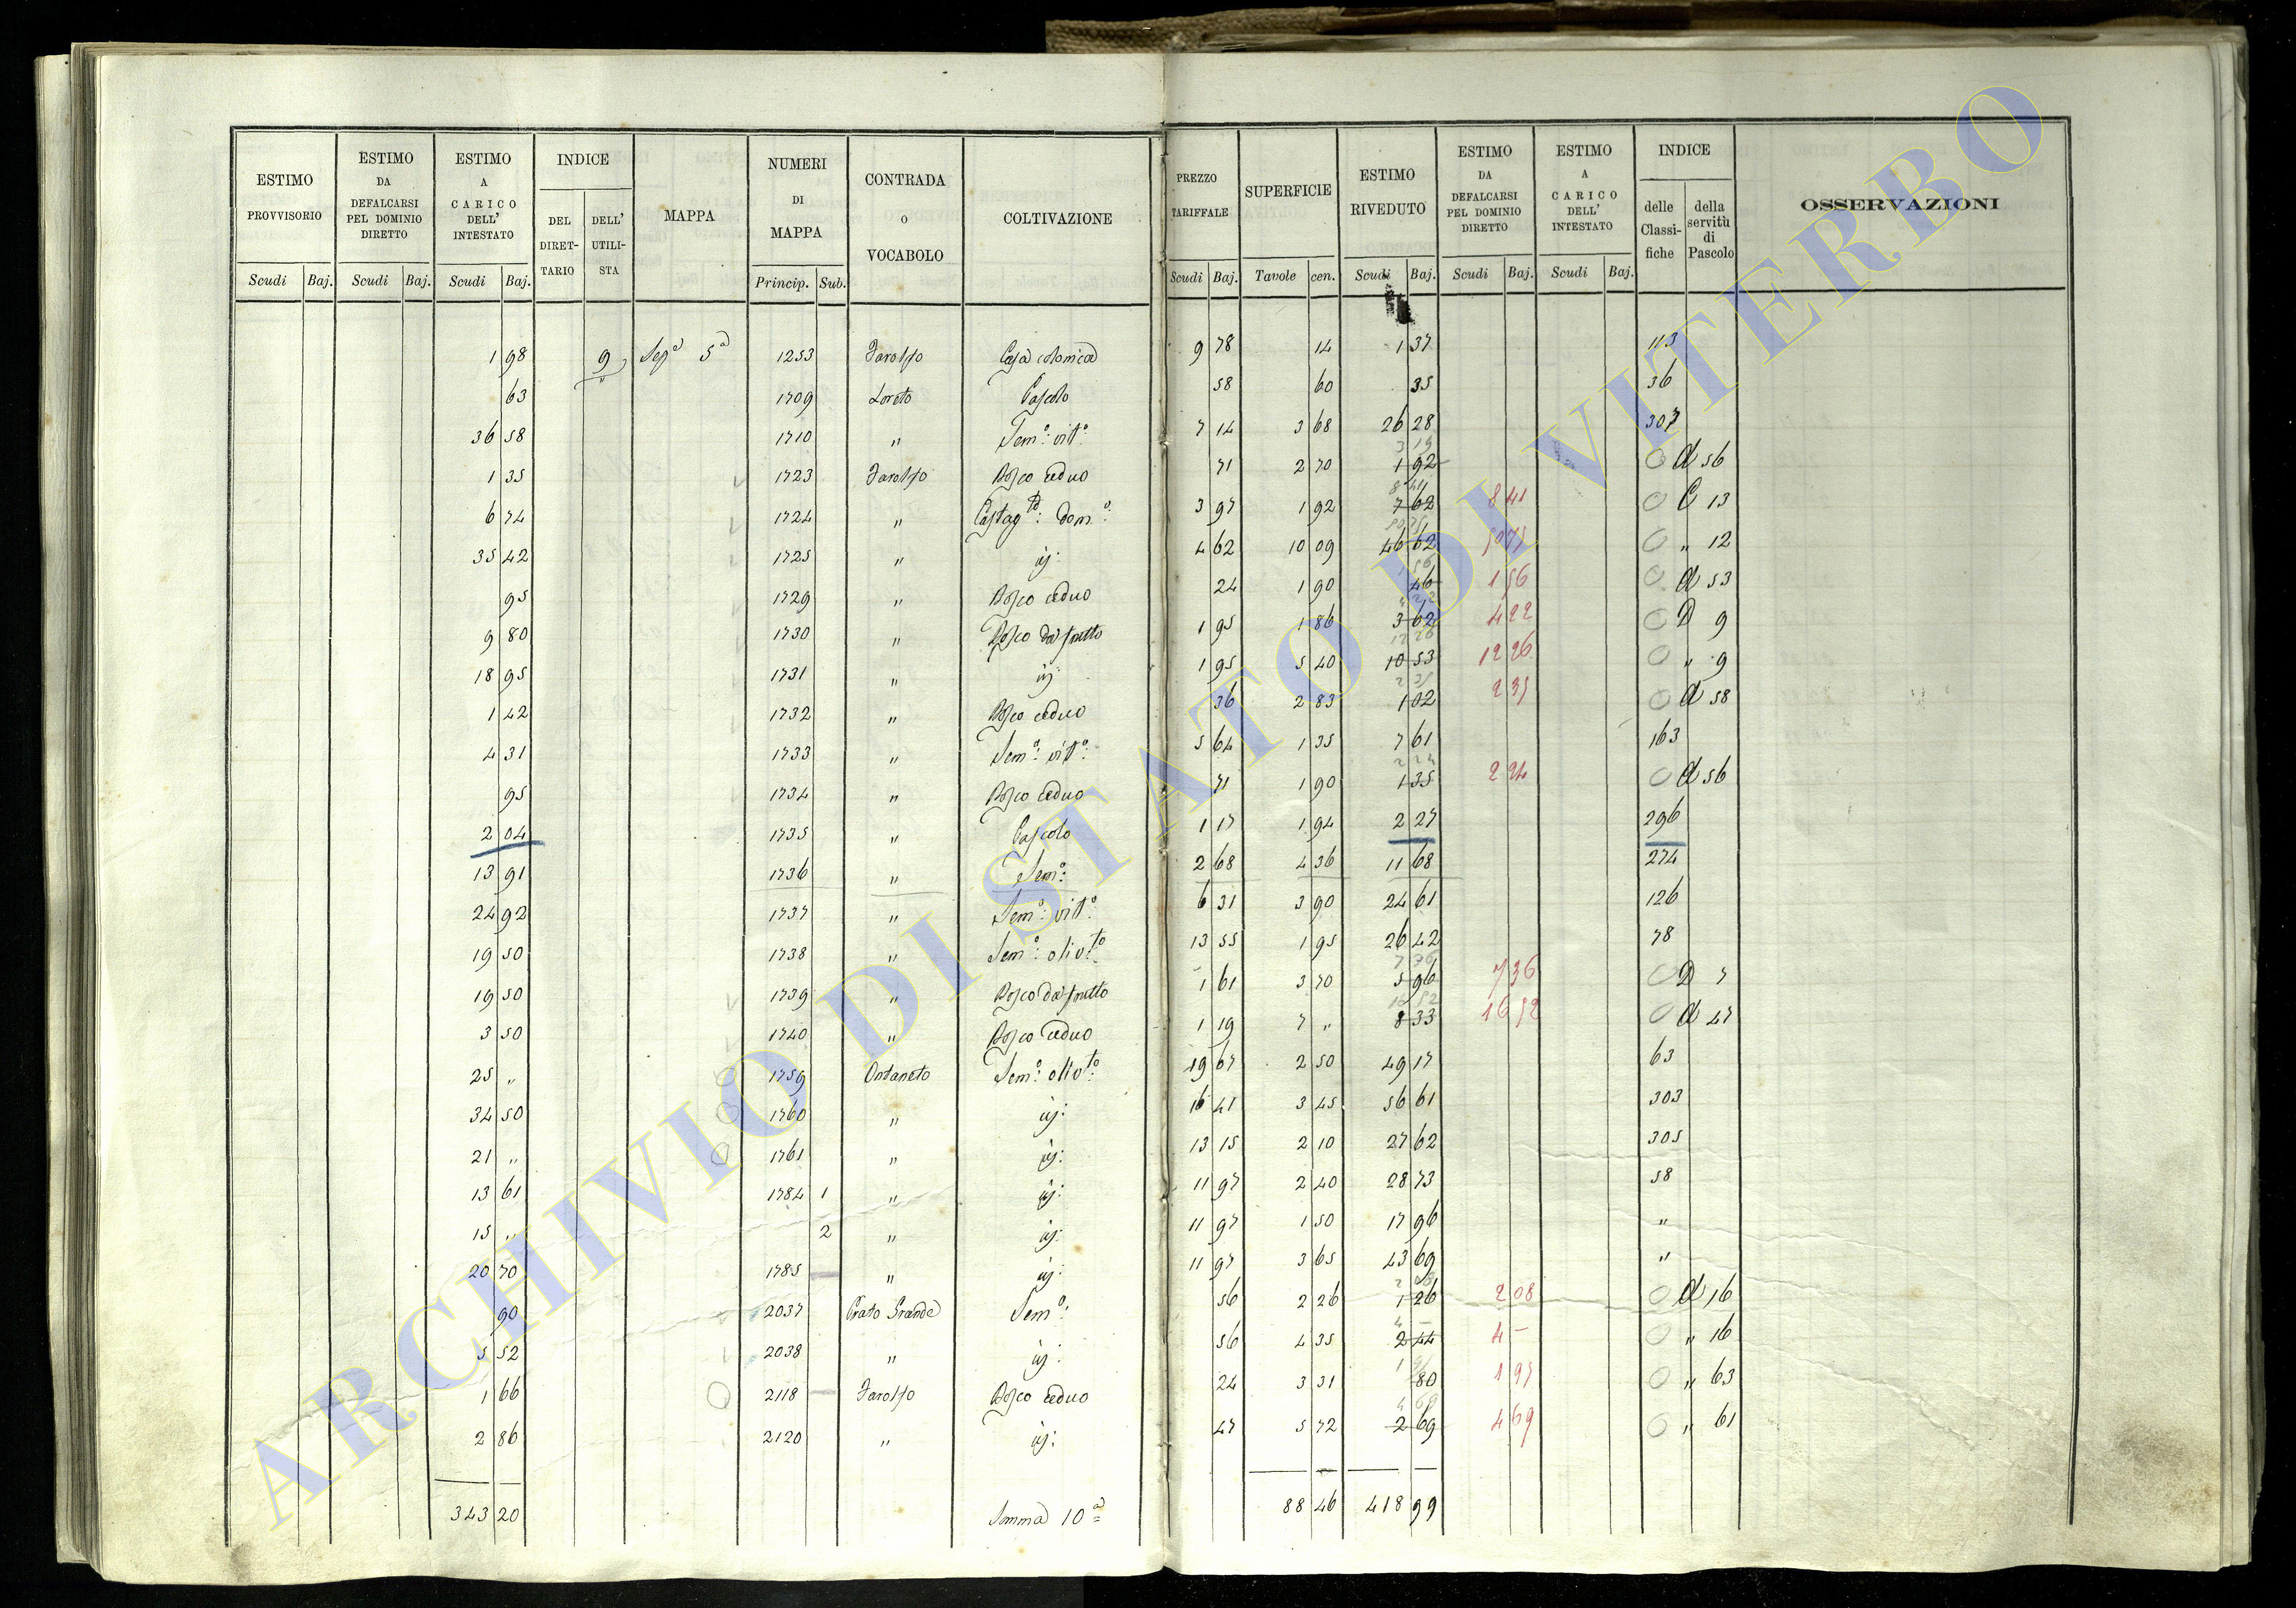 ESTIMO PROVVISORIO | ESTIMO DA DEFALCARSI PEL DOMINIO DIRETTO | ESTIMO A CARICO DELL' INTESTATO | INDICE DEL DIRET-TARIO | DELL' UTILI-STA | MAPPA | NUMERI DI MAPPA | CONTRADA O VOCABOLO | COLTIVAZIONE | PREZZO TARIFFALE | SUPERFICIE | ESTIMO RIVEDUTO | ESTIMO DA DEFALCARSI PEL DOMINIO DIRETTO | ESTIMO A CARICO DELL' INTESTATO | INDICE delle Classi-fiche | della servitù di Pascolo | OSSERVAZIONI
Scudi Baj. | Scudi Baj. | Scudi Baj. | Princip. Sub. | Scudi Baj. | Tavole cen. | Scudi Baj. | Scudi Baj. | Scudi Baj.
1 98 | 9 | Sezª 5ª | 1253 | Farolfo | Casa colonica | 9 78 | 14 | 1 37 | 113
63 | 1709 | Loreto | Pascolo | 58 | 60 | 35 | 36
36 58 | 1710 | " | Semº: vitº: | 7 14 | 3 68 | 26 28 | 307
1 35 | 1723 | Farolfo | Bosco ceduo | 71 | 2 70 | 3 19 | 1 92 | O A 56
6 74 | 1724 | " | Castagto: domº: | 3 97 | 1 92 | 8 41 | 7 62 | 8 41 | O C 13
35 42 | 1725 | " | id: | 4 62 | 10 09 | 50 75 | 46 62 | 50 75 | O " 12
95 | 1729 | " | Bosco ceduo | 24 | 1 90 | 1 56 | 46 | 1 56 | O A 53
9 80 | 1730 | " | Bosco da frutto | 1 95 | 1 86 | 4 22 | 3 62 | 4 22 | O D 9
18 95 | 1731 | " | id: | 1 95 | 5 40 | 12 26 | 10 53 | 12 26 | O " 9
1 42 | 1732 | " | Bosco ceduo | 36 | 2 83 | 2 35 | 1 02 | 2 35 | O A 58
4 31 | 1733 | " | Semº: vitº: | 5 64 | 1 35 | 7 61 | 163
95 | 1734 | " | Bosco ceduo | 71 | 1 90 | 2 24 | 1 35 | 2 24 | O A 56
2 04 | 1735 | " | Pascolo | 1 17 | 1 94 | 2 27 | 296
13 91 | 1736 | " | Semº: | 2 68 | 4 36 | 11 68 | 274
24 92 | 1737 | " | Semº: vitº: | 6 31 | 3 90 | 24 61 | 126
19 50 | 1738 | " | Semº: olivto: | 13 55 | 1 95 | 26 42 | 78
19 50 | 1739 | " | Bosco da frutto | 1 61 | 3 70 | 7 36 | 5 96 | 7 36 | O D 7
3 50 | 1740 | " | Bosco ceduo | 1 19 | 7 " | 16 52 | 8 33 | 16 52 | O A 47
25 " | 1759 | Ontaneto | Semº: olivto: | 19 67 | 2 50 | 49 17 | 63
34 50 | 1760 | " | id: | 16 41 | 3 45 | 56 61 | 303
21 " | 1761 | " | id: | 13 15 | 2 10 | 27 62 | 305
13 61 | 1784 1 | " | id: | 11 97 | 2 40 | 28 73 | 58
15 " | 2 | " | id: | 11 97 | 1 50 | 17 96 | "
20 70 | 1785 | " | id: | 11 97 | 3 65 | 43 69 | "
90 | 2037 | Prato Grande | Semº: | 56 | 2 26 | 2 08 | 1 26 | 2 08 | O A 16
5 52 | 2038 | " | id: | 56 | 4 35 | 4 – | 2 44 | 4 – | O " 16
1 66 | 2118 | Farolfo | Bosco ceduo | 24 | 3 31 | 80 | 1 97 | O " 63
2 86 | 2120 | " | id: | 47 | 5 72 | 4 69 | 2 69 | 4 69 | O " 61
343 20 | Somma 10ª | 88 46 | 418 99
ARCHIVIO DI STATO DI VITERBO